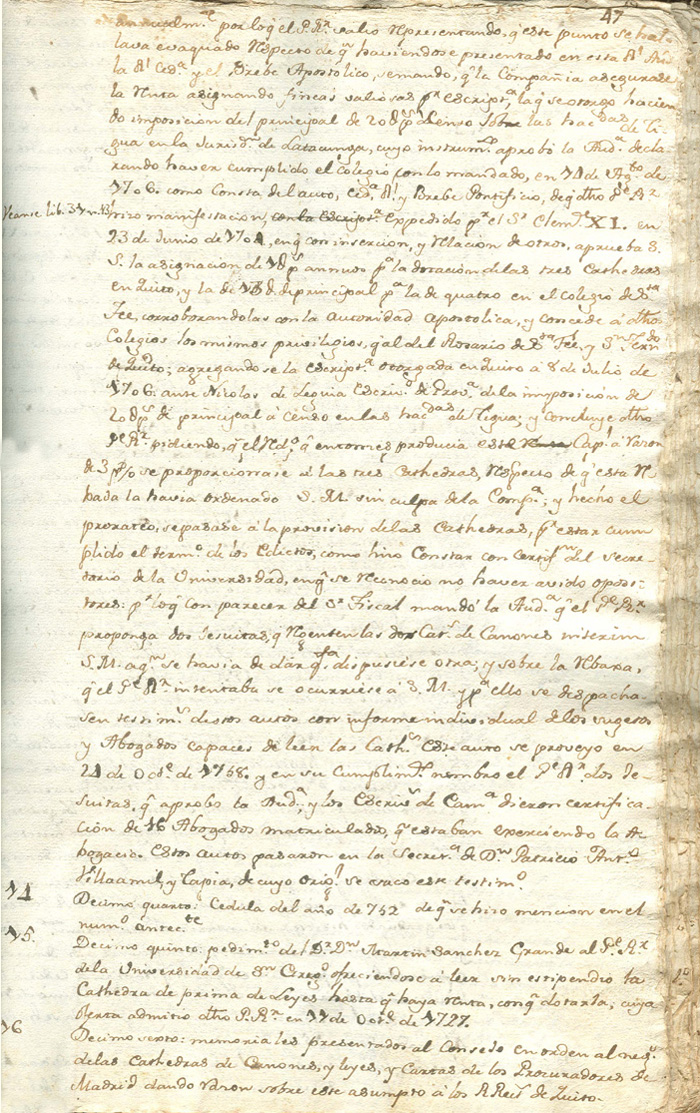 47
por loq̃ el P. Rᵒʳ salio Representando, q̃ este punto se hal-
lava evaquado Respecto de q̃ haviendose presentado en esta Rˡ Auᵃ
la Rˡ Cedᵃ y el Brebe Apostolico, se mando, q̃ la Compañia asegurase
la Renta asignando fincas valiosas pʳ escriptᵃ laq̃ se otorgo hacien-
do imposicion del principal de 20 δ pˢ à censo sobre las hacᵈᵃˢ de Ti-
gua en la Jurisdⁿ de Latacunga, cuyo instrumᵗᵒ aprobó la Audᵃ decla-
rando haver cumplido el colegio con lo mandado, en de Agᵗᵒ de
1706. como Consta del auto, Cedᵃ Rˡ y Brebe Pontificio, de q̃ dho Pᵉ Rᵒʳ
Veanse lib. 3
hizo manifestacion, con la Escriptᵃ expedido pʳ el Sʳ Clemᵗᵉ XI. en
23 de Junio de 1704, en q̃ con insercion, y Relacion de otros, aprueba S.
S. la asignacion de 1 δ pˢ annuos pᵃ la dotacion de las tres Cathedras
en Quito, y la de 13 δ de principal pᵃ la de quatro en el Colegio de Sᵗᵃ
Fee, corroborandolas con la autoridad Apostolica, y concede à dhos
Colegios los mismos privilegios, q̃ al del Rosario de Sᵗᵃ Fee, y Sⁿ Fernᵈᵒ
de Quito; agregandose la escriptᵃ otorgada en Quito à 8 de Julio de
1706. ante Nicolas de Leguia Escrivᵒ de Provᵃ de la imposicion de
20 δ pˢ de principal à censo en las hacᵈᵃˢ de Tigua; y concluye dho
Pᵉ Rᵒʳ pidiendo, q̃ el Redᵒ q̃ entonces producia este Capˡ à razon
de 3 p/o se proporcionase à las tres Cathedras, Respecto de q̃ esta Re-
baja la havia ordenado S. M. sin culpa de la Compᵃ; y hecho el
prorateo, se pasase à la provision de las Cathedras, pʳ estar cum-
plido el termᵒ de los Edictos, como hizo Constar con Certifⁿ del Secre-
tario de la Universidad, en q̃ se Reconocio no haver avido oposi-
tores: pʳ loq̃ con parecer del Sʳ Fiscal mandó la Audᵃ q̃ el Pᵉ Rᵒʳ
proponga dos Jesuitas, q̃ Regenten las dos Catˢ de Canones interim
S. M. aqⁿ se havia de dar qᵗᵃ dispusiese otra; y sobre la Rebaxa,
q̃ el Pᵉ Rᵒʳ intentaba se ocurriese à S. M. y pᵃ ello se despacha-
sen testimᵒ destos autos con informe individual de los sugetos
y Abogados capaces de leer las Cathˢ Este auto se proveyo en
24 de Octᵉ de 1758. y en su Cumplimᵗᵒ nombro el Pᵉ Rᵒʳ dos Je-
suitas, q̃ aprobó la Audᵃ, y los Escrivˢ de Camᵃ dieron certifica-
cion de 16 Abogados matriculados, q̃ estaban exerciendo la A-
bogacia. Estos autos pasaron en la Secretᵃ de Dⁿ Patricio Antᵒ
Villaamil, y Tapia, de cuyo origˡ se saco este testimᵒ
14
Decimo quarto: Cedula del año de 752 de q̃ se hizo mencion en el
numᵒ antecᵗᵉ
15.
Decimo quinto: pedimᵗᵒ del Dʳ Dⁿ Martin Sanchez Grande al Pᵉ Rᵒʳ
de la Universidad de Sⁿ Gregᵒ ofreciendose à leer sin estipendio la
Cathedra de prima de Leyes hasta q̃ haya Renta, con q̃ dotarla, cuya
oferta admitio dho P. Rᵒʳ en 11 de Octᵉ de 1727.
16
Decimo sexto: memoriales presentados al Consejo en orden al negᵒ
de las Cathedras de Canones, y leyes, y Cartas de los Procuradores de
Madrid dando razon sobre este asumpto à los RReˢ de Quito.